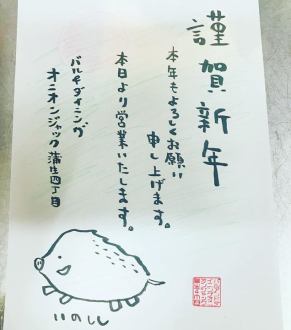 謹賀新年
本年もよろしくお願い
申し上げます。
本日より営業いたします。
バルチダイニング
オニオンジャック蒲生四丁目
いのしし